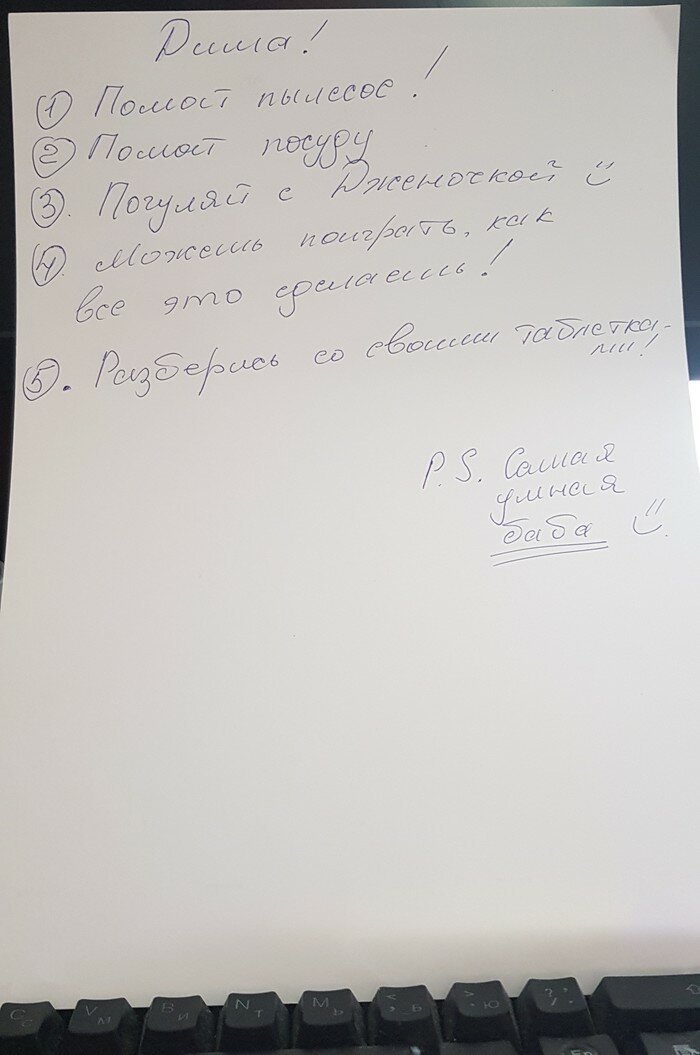 Дима!
① Помой пылесос!
② Помой посуду
③. Погуляй с Дженочкой
④. Можешь поиграть, как
все это сделаешь!
⑤. Разберись со своими таблетка-
ми!
P.S. Самая
умная
баба
C С
V М
B И
N Т
M Ь
< , Б
> . Ю
? / .